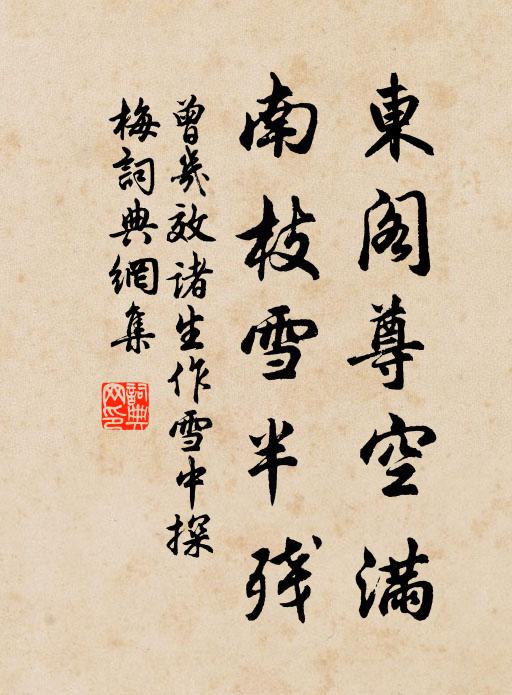 東閣尊空滿
南枝雪半殘
曾幾效諸生作雪中探
梅詞典網集
詞典網印